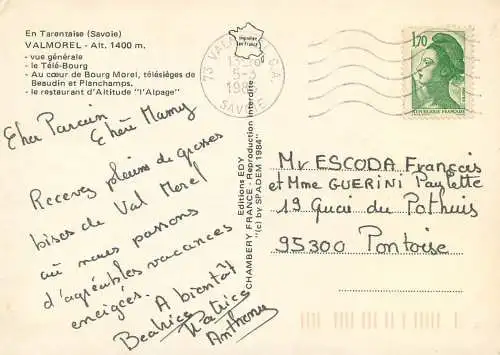 En Tarentaise (Savoie)
VALMOREL - Alt. 1400 m.
- vue générale
- le Télé-Bourg
- Au cœur de Bourg Morel, télésièges de
Beaudin et Planchamps.
- le restaurant d'Altitude "l'Alpage"
Cher Parrain
Chère Mamy
Recevez pleins de grosses
bises de Val Morel
où nous passons
d'agréables vacances
eneigées.
A bientôt
Beatrice Patrice
Anthony
Editions EDY
CHAMBERY FRANCE - Reproduction interdite
"(c) by SPADEM 1984"
Imprimé
en France
73 VALMOREL C.A.
5-3
SAVOIE
1,70
REPUBLIQUE FRANÇAISE
Mr ESCODA François
et Mme GUERINI Paylette
19 Quai du Pothuis
95300 Pontoise